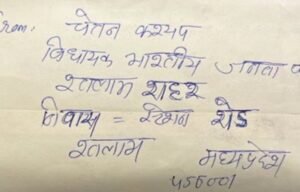 from, चेतन कश्यप
विधायक भारतीय जनता
रतलाम शहर
निवास = स्टेशन रोड
रतलाम मध्यप्रदेश
४५७००१